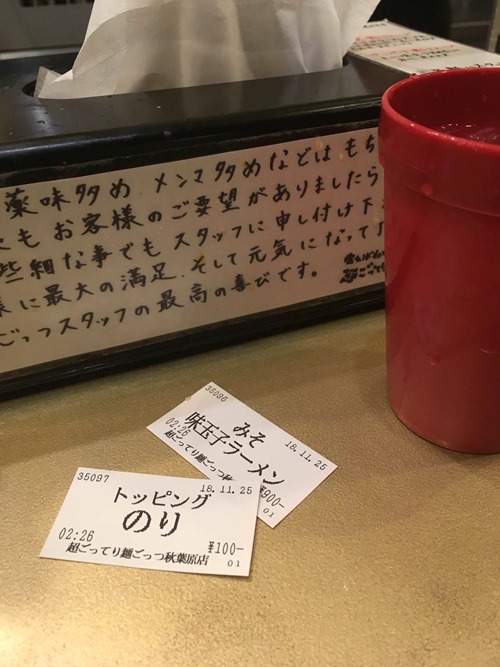 薬味多め メンマ多めなどはもち
もお客様のご要望がありましたら
些細な事でもスタッフに申し付け下
に最大の満足、そして元気になって
ごっつスタッフの最高の喜びです。
35096
みそ
味玉子ラーメン
02:26
18.11.25
¥900-
超ごってり麺ごっつ
01
35097
18.11.25
トッピング
のり
02:26
¥100-
超ごってり麺ごっつ秋葉原店
01